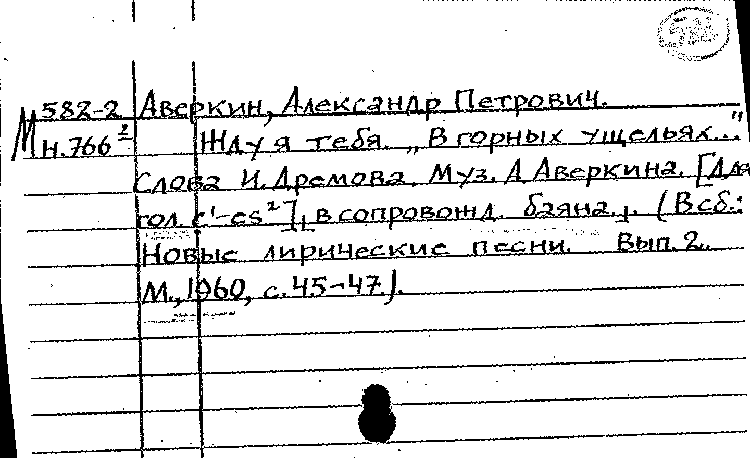 582
М 582-2 Аверкин, Александр Петрович.
Н.766² Жду я тебя. „В горных ущельях..."
Слова И. Дремова. Муз. А. Аверкина. [Для
гол. c¹-es²], в сопровожд. баяна. (В сб.:
Новые лирические песни. Вып. 2.
М., 1960, с. 45-47).